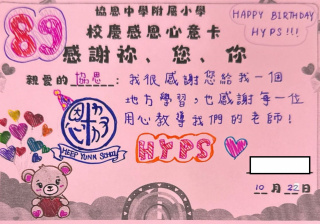 89
協恩中學附屬小學
校慶感恩心意卡
感謝祢、您、你
HAPPY BIRTHDAY
HYPS!!!
親愛的 協恩 : 我很感謝您給我一個
地方學習，也感謝每一位
用心教導我們的老師！
HEEP YUNN SCHOOL
HYPS
10 月 22 日